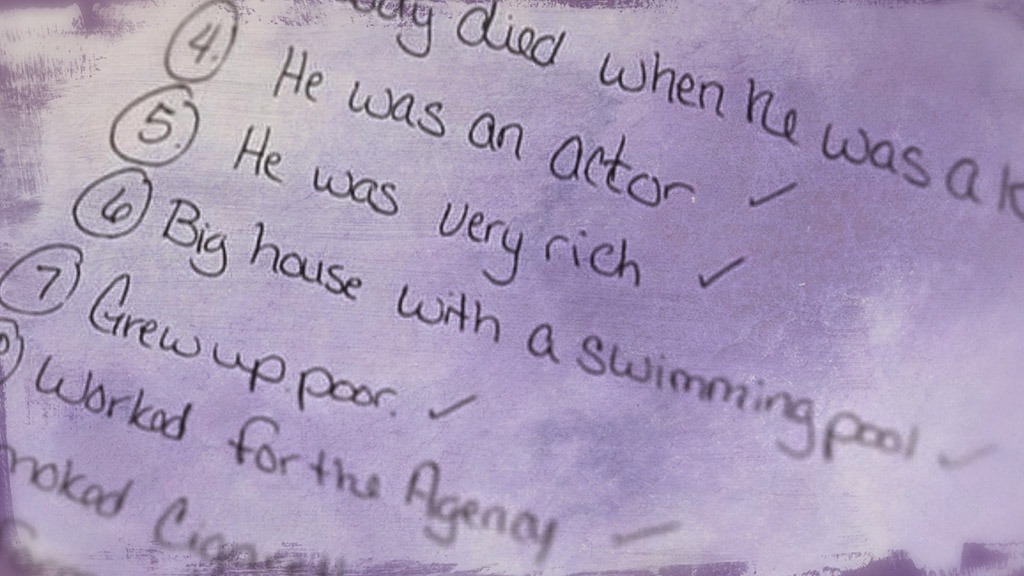 died when he was a
4. He was an actor ✓
5. He was very rich ✓
6 Big house with a swimming pool ✓
7 Grew up poor. ✓
Worked for the Agency ✓